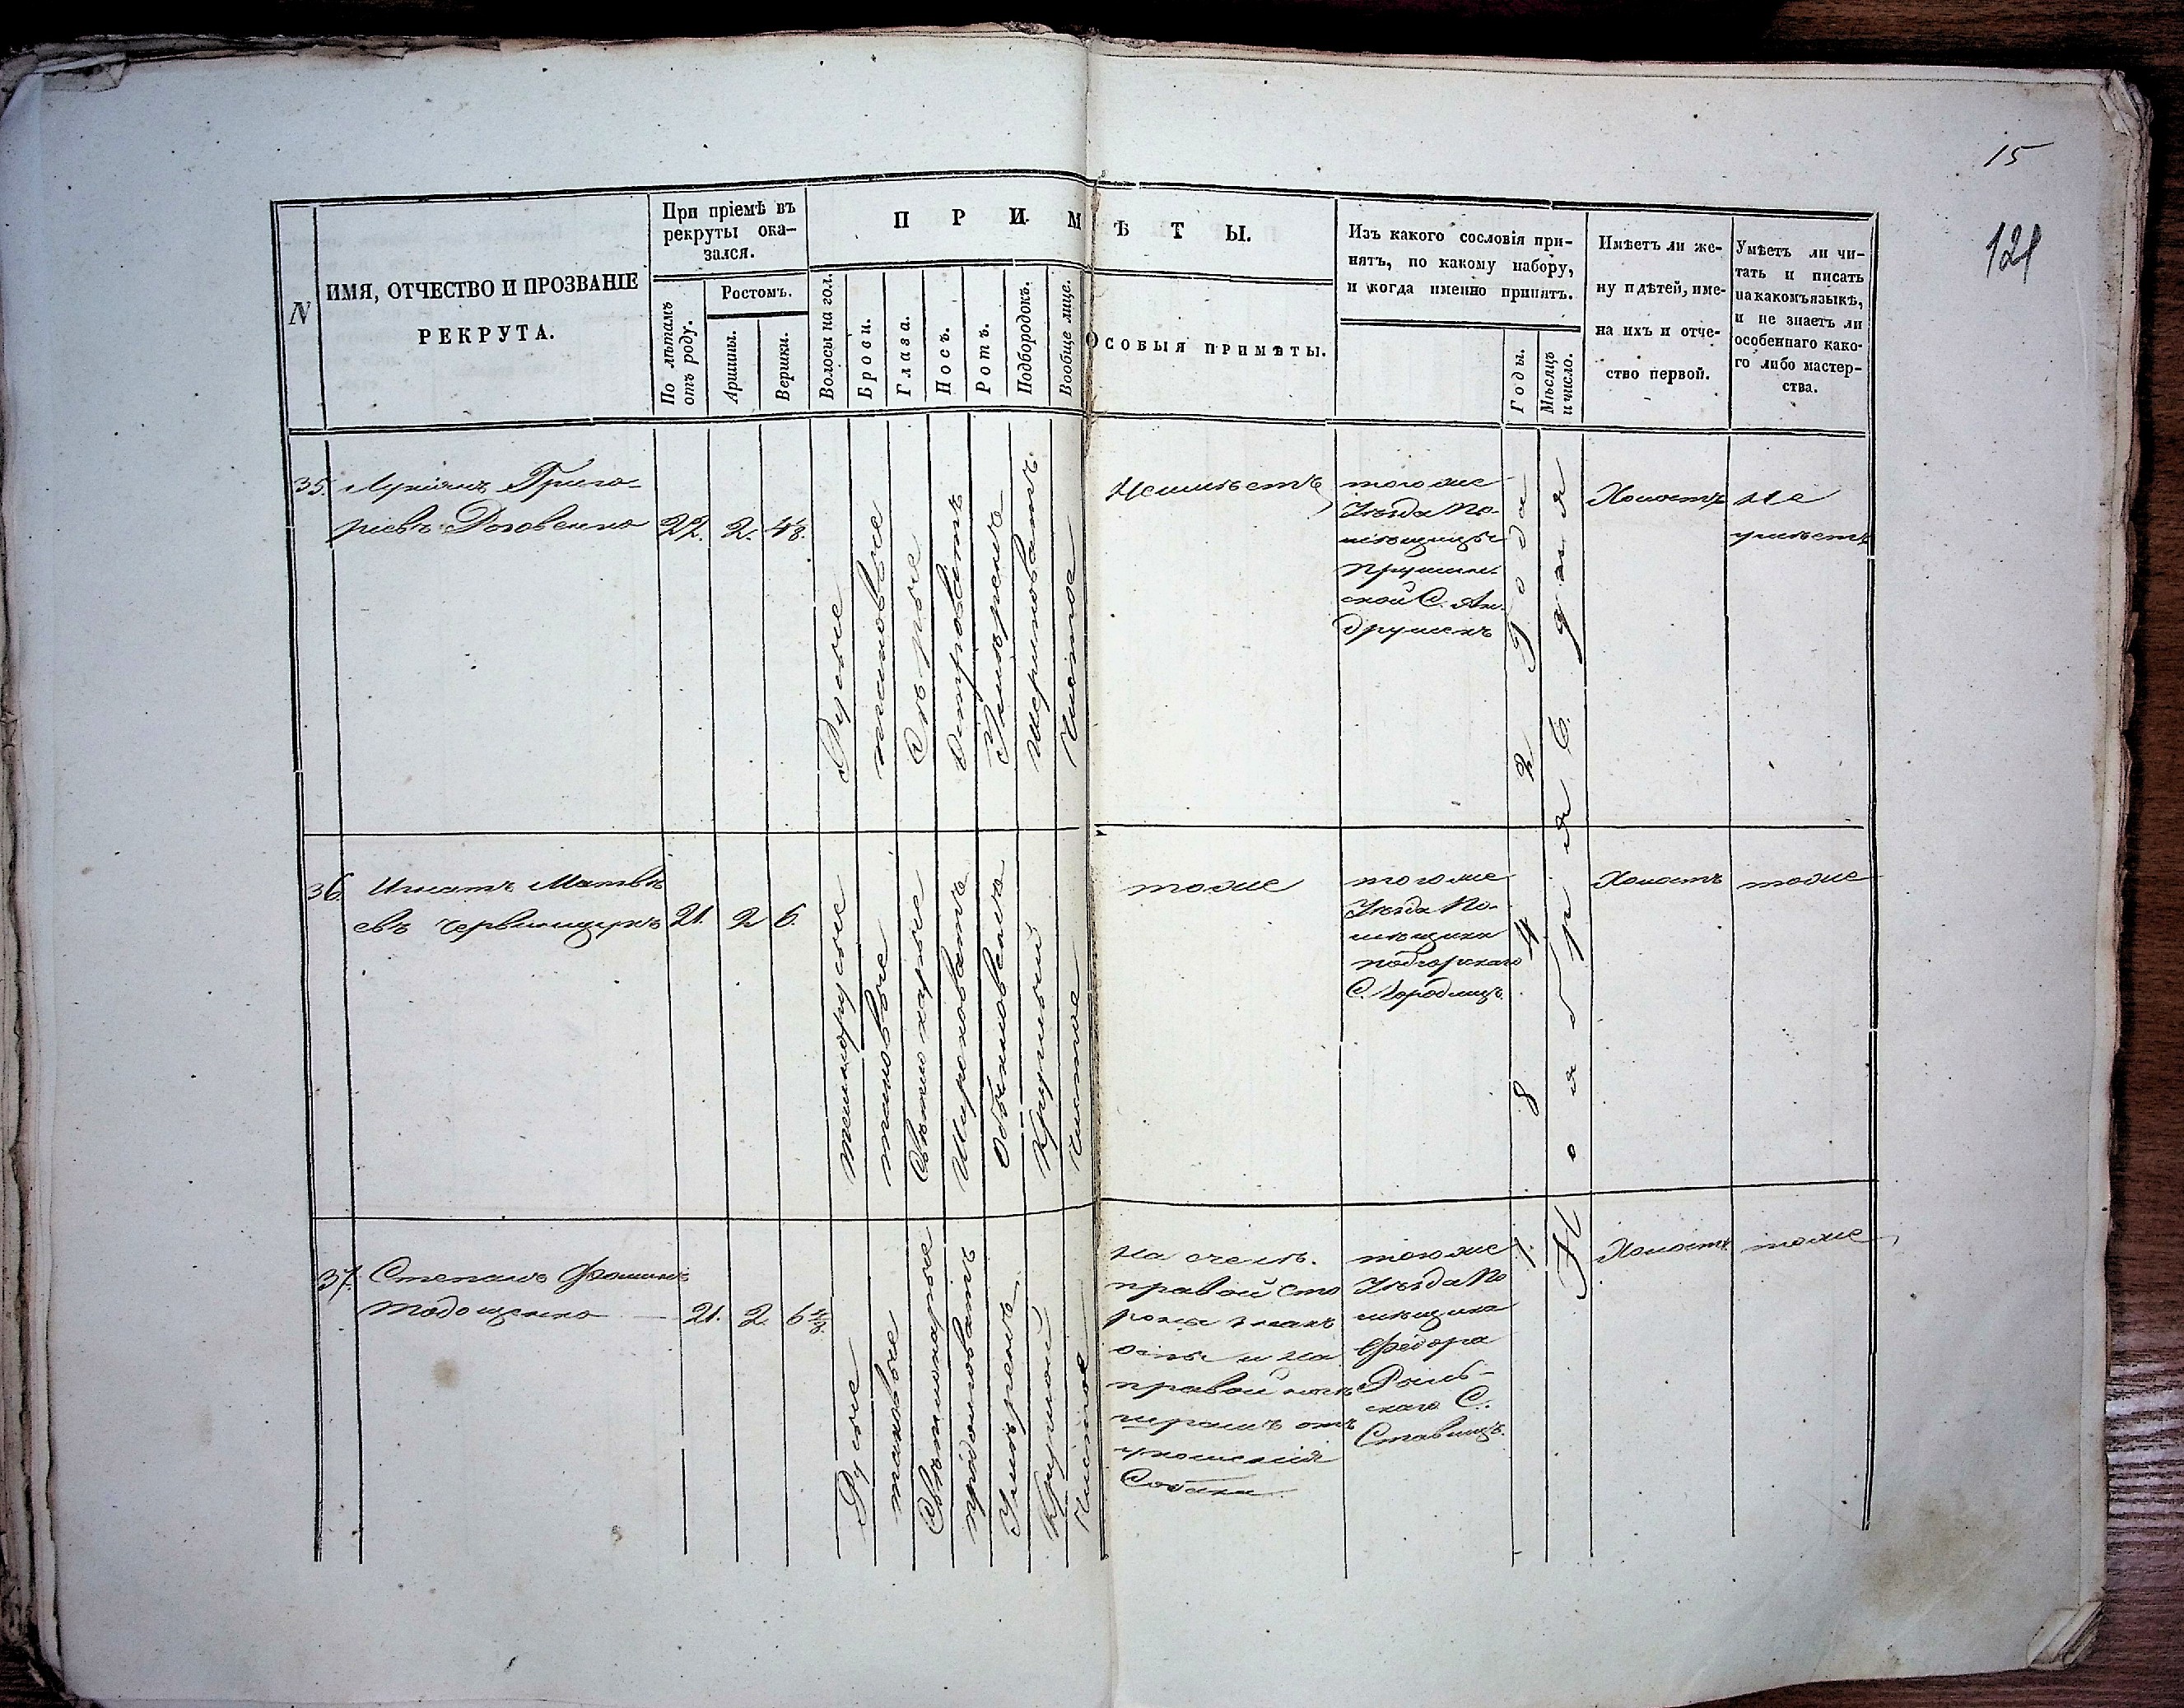 15
121
N
ИМЯ, ОТЧЕСТВО И ПРОЗВАНІЕ
РЕКРУТА.
При пріемѣ въ
рекруты ока-
зался.
По лѣтамъ
отъ роду.
Ростомъ.
Аршины.
Вершки.
ПРИМѢТЫ.
Волосы на гол.
Брови.
Глаза.
Носъ.
Ротъ.
Подбородокъ.
Вообще лице.
ОСОБЫЯ ПРИМѢТЫ.
Изъ какого сословія при-
нятъ, по какому набору,
и когда именно принятъ.
Годы.
Мѣсяцъ
и число.
Имѣетъ ли же-
ну и дѣтей, име-
на ихъ и отче-
ство первой.
Умѣетъ ли чи-
тать и писать
на какомъ языкѣ,
и не знаетъ ли
особеннаго како-
го либо мастер-
ства.
35.
Лукіянъ Григо-
рьевъ
22.
2.
Русые
таковые
Сѣрые
Островатъ
Умѣренъ
Чистое
Неимѣетъ
того же
Уѣзда По-
мѣщицы
С. Ан-
друшекъ
1842 года
Ноября 6 дня
Холостъ
Не
умѣетъ
36.
Игнатъ Матвѣ-
евъ Червинщукъ
21.
2
6.
темнорусые
таковые
Свѣтлокарые
Широковатъ
Обыкновенъ
Круглый
Чистое
тоже
того же
Уѣзда По-
мѣщика
Подгорскаго
С. Городищъ
Холостъ
тоже
37.
Степанъ Фоминъ
21.
2.
Русые
таковые
Свѣтлокарые
продолговатъ
Умѣренъ
Круглой
Чистое
На челѣ
правой сто
роны знакъ
оспы и на
правой ногѣ
шрамъ отъ
укошенія
Собаки
того же
Уѣзда По
мѣщика
Федора
скаго С.
Ставищъ.
Холостъ
тоже